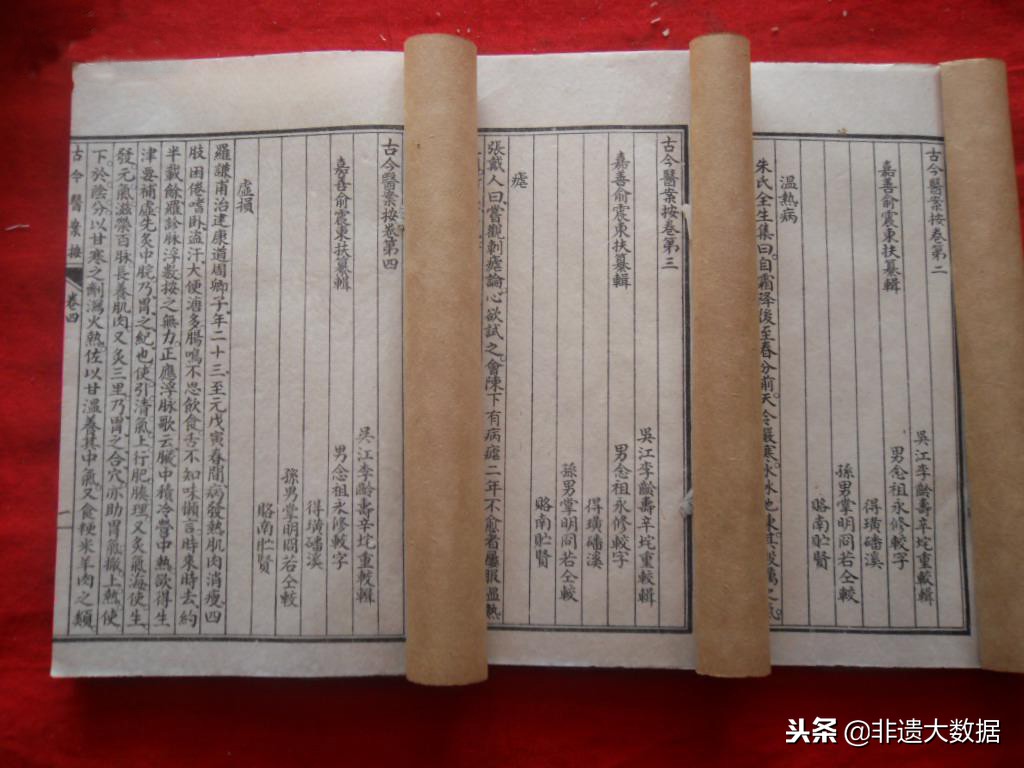 古今醫案按卷第二
嘉善俞震東扶纂輯
吳江李齡壽辛垞重較輯
男念祖永修較字
得璜磻溪
孫男掌明問若仝較
賂南貯賢
溫熱病
朱氏全生集曰自霜降後至春分前天令嚴寒水冰地凍
古今醫案按卷第三
嘉善俞震東扶纂輯
吳江李齡壽辛垞重較輯
男念祖永修較字
得璜磻溪
孫男掌明問若仝較
賂南貯賢
瘧
張戴人曰嘗觀刺瘧論心欲試之會陳下有病瘧二年不愈者屢服溫熱
古今醫案按卷第四
嘉善俞震東扶纂輯
吳江李齡壽辛垞重較輯
男念祖永修較字
得璜磻溪
孫男堂明問若仝較
賂南貯賢
虛損
羅謙甫治建康道周卿子年二十三至元戊寅春間病發熱肌肉消瘦四
肢困倦嗜卧盜汗大便溏多腸鳴不思飲食舌不知味懶言時來時去約
半載餘羅診脉浮數按之無力正應浮脉歌云臟中積冷營中熱欲得生
津要補虛先灸中脘乃胃之紀也使引清氣上行肥腠理又灸氣海使生
發元氣滋榮百脉長養肌肉又灸三里乃胃之合穴亦助胃氣撤上熱使
下於陰分以甘寒之劑瀉火熱佐以甘溫養其中氣又食粳米羊肉之類
古今醫案按
卷四
一
頭条 @非遗大数据